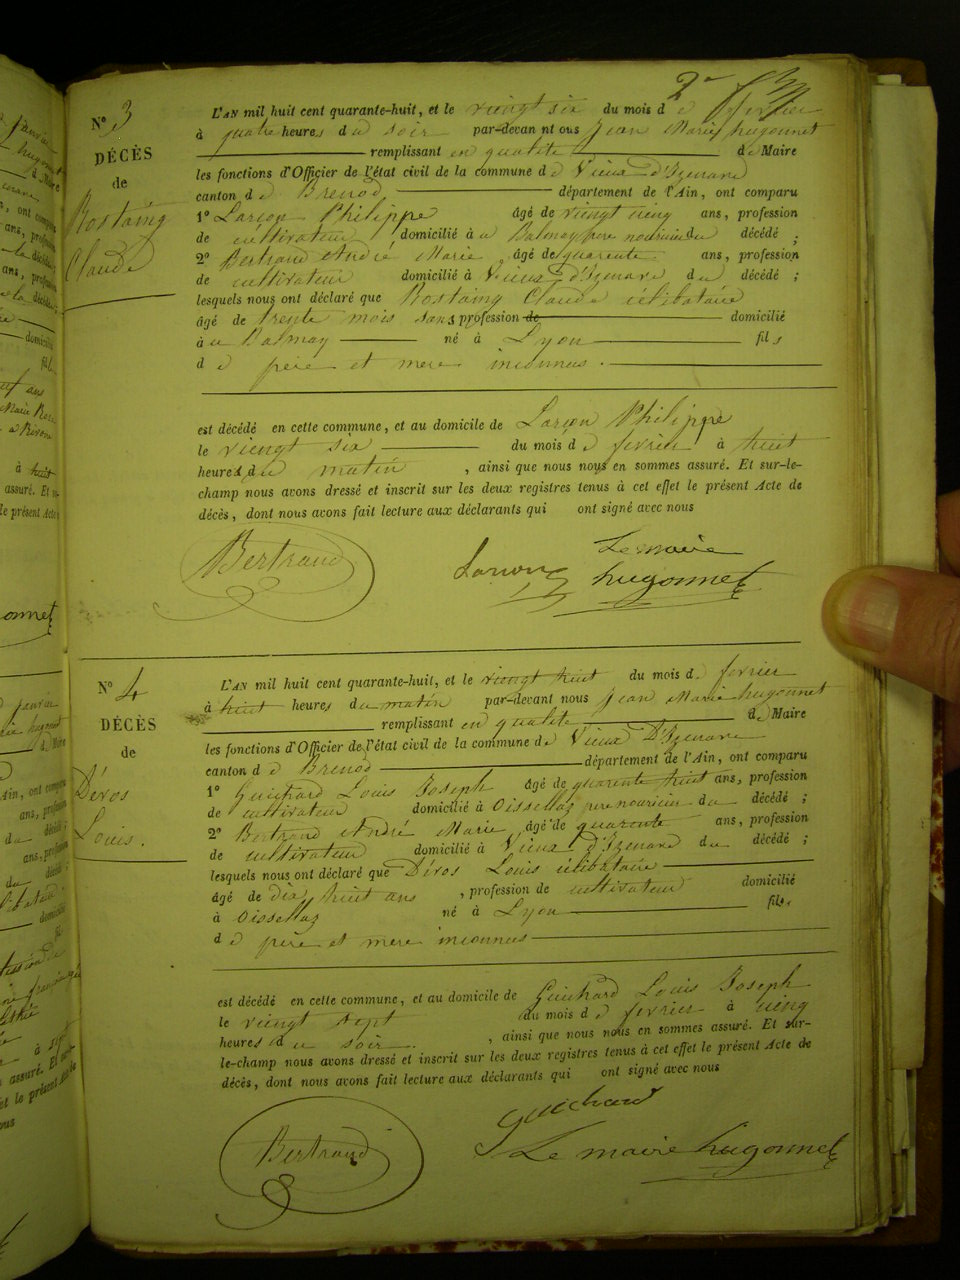 2e
N° 3
DÉCÈS
de
Rostaing
Claude
L'AN mil huit cent quarante-huit, et le viengt six du mois de fevrier
à quatre heures du soir par-devan nt ous Jean Marie hugonnet
remplissant en qualité de Maire
les fonctions d'Officier de l'état civil de la commune de Vieux d'Izenave
canton de Brenod département de l'Ain, ont comparu
1° Larçon Philippe âgé de viengt cinq ans, profession
de cultivateur domicilié à a Balmay pere nouricier du décédé ;
2° Bertrand André Marie âgé de quarente ans, profession
de cultivateur domicilié à Vieux d'Izenave du décédé ;
lesquels nous ont déclaré que Rostaing Claude célibataire
âgé de trente mois sans profession de domicilié
à au Balmay né à Lyon fils
de père et mere inconnus.
est décédé en cette commune, et au domicile de Larçon Philippe
le viengt six du mois de fevrier à huit
heures du matin , ainsi que nous nous en sommes assuré. Et sur-le-
champ nous avons dressé et inscrit sur les deux registres tenus à cet effet le présent Acte de
décès, dont nous avons fait lecture aux déclarants qui ont signé avec nous
Bertrand Larçon Le maire
hugonnet
N° 4
DÉCÈS
de
Déros
Louis.
L'AN mil huit cent quarante-huit, et le viengt huit du mois de fevrier
à huit heures du matin par-devant nous Jean Marie hugonnet
remplissant en qualité de Maire
les fonctions d'Officier de l'état civil de la commune de Vieux D'Izenave
canton de Brenod département de l'Ain, ont comparu
1° Guichard Louis Joseph âgé de quarente huit ans, profession
de cultivateur domicilié à Oissellaz pere nouricier du décédé ;
2° Bertrand André Marie âgé de quarente ans, profession
de cultivateur domicilié à Vieux d'Izenave du décédé ;
lesquels nous ont déclaré que Déros Louis célibataire
âgé de dix huit ans , profession de cultivateur domicilié
à Oissellaz né à Lyon fils
de père et mere inconnus
est décédé en cette commune, et au domicile de Guichard Louis Joseph
le viengt sept du mois de fevrier à cienq
heures du soir. , ainsi que nous nous en sommes assuré. Et sur-
le-champ nous avons dressé et inscrit sur les deux registres tenus à cet effet le présent Acte de
décès, dont nous avons fait lecture aux déclarants qui ont signé avec nous
Guichard
Bertrand Le maire hugonnet